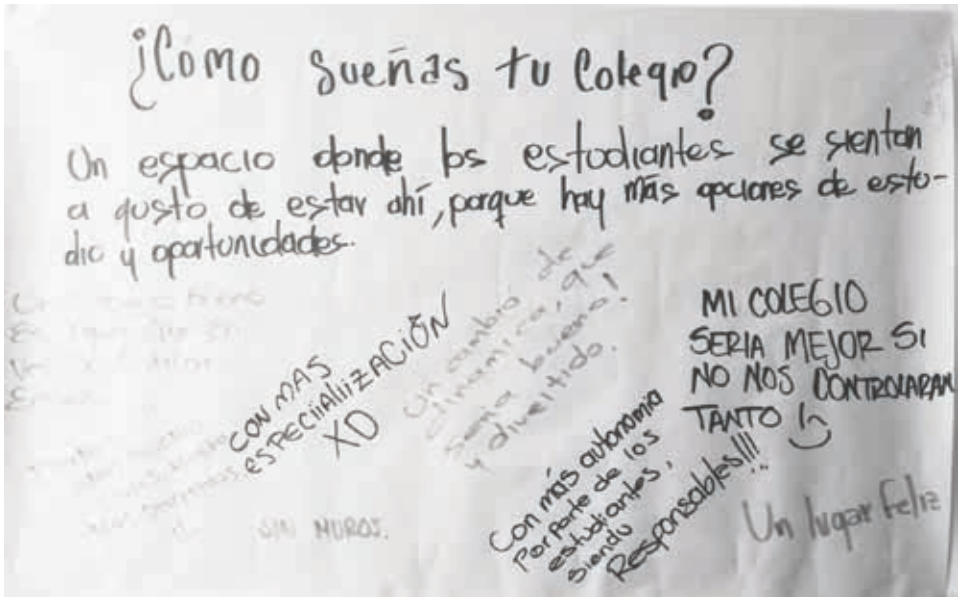 ¿Cómo sueñas tu Colegio?
Un espacio donde los estudiantes se sientan
a gusto de estar ahí, porque hay más opciones de estu-
dio y oportunidades.
CON MAS
ESPECIIALIIZACIÓN
XD
Un cambio de
dinamica, que
seria bueno!
y divertido.
MI COLEGIO
SERIA MEJOR SI
NO NOS CONTROLARAN
TANTO
Con más autonomia
Por Parte de los
estudiantes,
siendo
Responsables!!!
SIN MUROS.
Un lugar Feliz